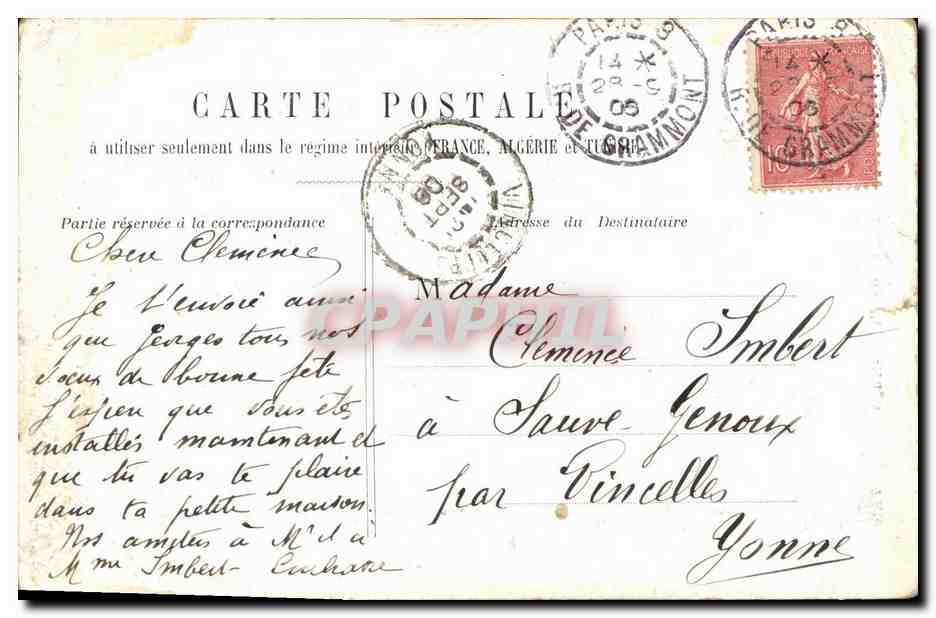 CARTE POSTALE
à utiliser seulement dans le régime intérieur, FRANCE, ALGÉRIE et TUNISIE
Partie réservée à la correspondance
Adresse du Destinataire
PARIS 8
14 *
28 -9
05
R. DE GRAMMONT
PARIS 8
14 *
05
R. DE GRAMMONT
REPUBLIQUE FRANÇAISE
10
YONNE
SEPT
CPAPHIL
Chere Clemence
Je t'envoie ainsi
que Georges tous nos
voeux de bonne fête
J'espere que vous êtes
installés maintenant et
que tu vas te plaire
dans ta petite maison.
Nos amities à Mr et à
Mme Imbert
Madame
Clemence Imbert
à Sauve-Genoux
par Vincelles
Yonne